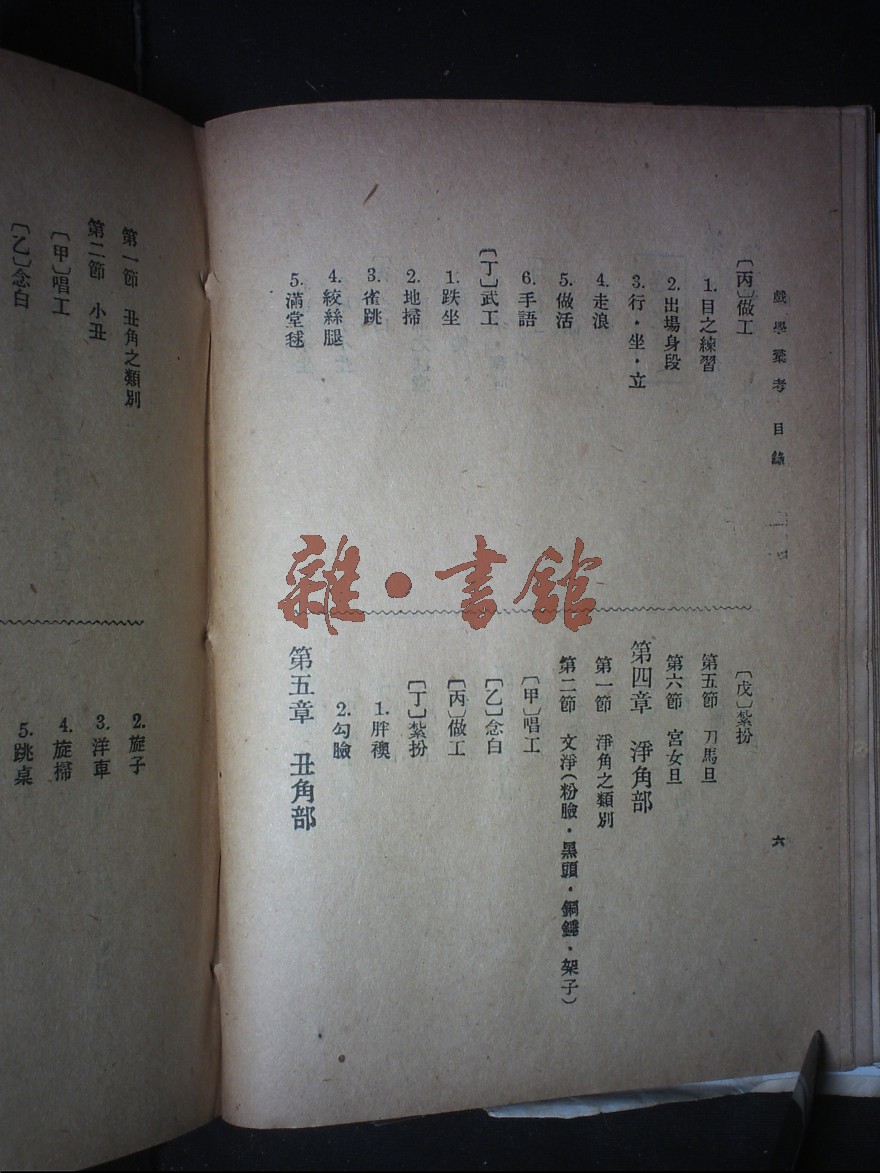 戲學彙考 目錄
六
〔丙〕做工
1.目之練習
2.出場身段
3.行·坐·立
4.走浪
5.做活
6.手語
〔丁〕武工
1.跌坐
2.地掃
3.雀跳
4.絞絲腿
5.滿堂毬
〔戊〕紮扮
第五節 刀馬旦
第六節 宮女旦
第四章 淨角部
第一節 淨角之類別
第二節 文淨(粉臉·黑頭·銅鎚·架子)
〔甲〕唱工
〔乙〕念白
〔丙〕做工
〔丁〕紮扮
1.胖襖
2.勾臉
第五章 丑角部
第一節 丑角之類別
第二節 小丑
〔甲〕唱工
〔乙〕念白
2.旋子
3.洋車
4.旋掃
5.跳桌
雜·書館